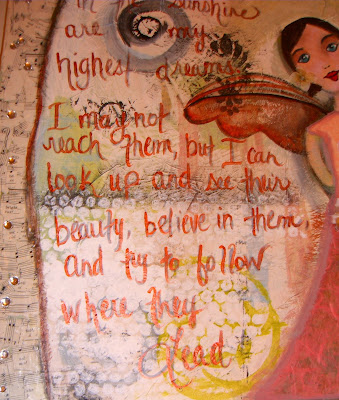 in the sunshine
are my
highest dreams.
I may not
reach them, but I can
look up and see their
beauty, believe in them,
and try to follow
where they
lead